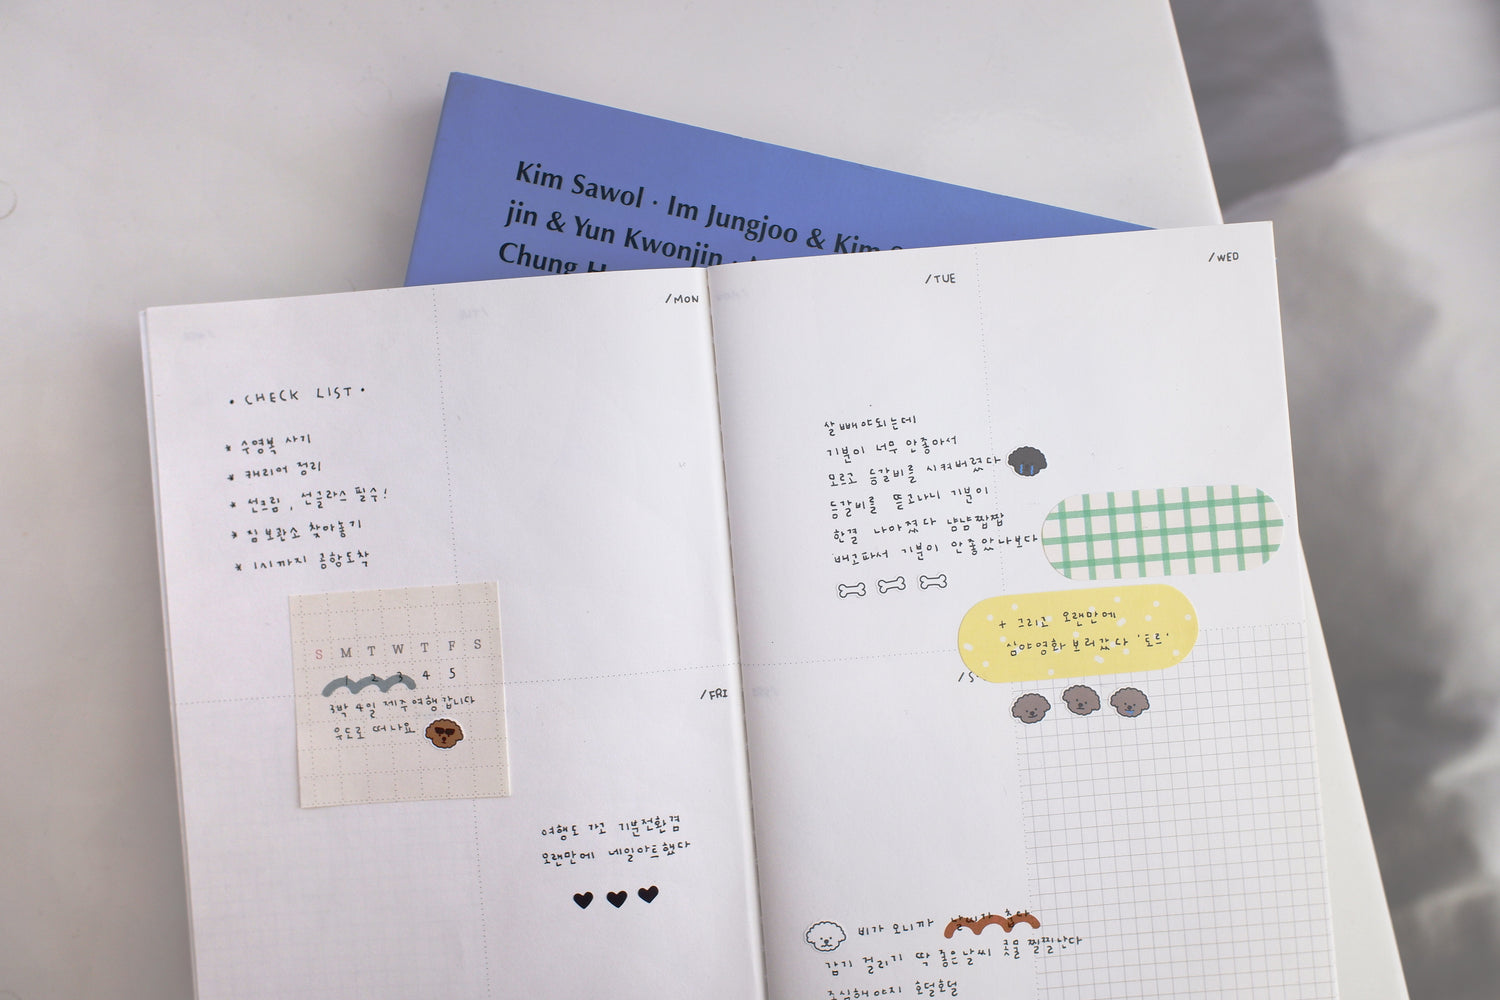 Kim Sawol · Im Jungjoo & Kim
jin & Yun Kwonjin ·
Chung
/MON
• CHECK LIST •
* 수영복 사기
* 캐리어 정리
* 선크림, 선글라스 필수!
* 짐보관소 찾아놓기
* 1시까지 공항도착
S M T W T F S
1 2 3 4 5
3박 4일 제주여행 갑니다
우도로 떠나요
/FRI
여행도 가고 기분전환겸
오랜만에 네일아트했다
/TUE
/WED
살빼야되는데
기분이 너무 안좋아서
모르고 등갈비를 시켜버렸다
등갈비를 뜯고나니 기분이
한결 나아졌다 냠냠짭짭
배고파서 기분이 안좋았나보다
+ 그리고 오랜만에
심야영화 보러갔다 '토르'
/S
비가 오니까 날씨가 춥다
감기 걸리기 딱 좋은날씨 콧물 찔찔난다
조심해야지 호덜호덜